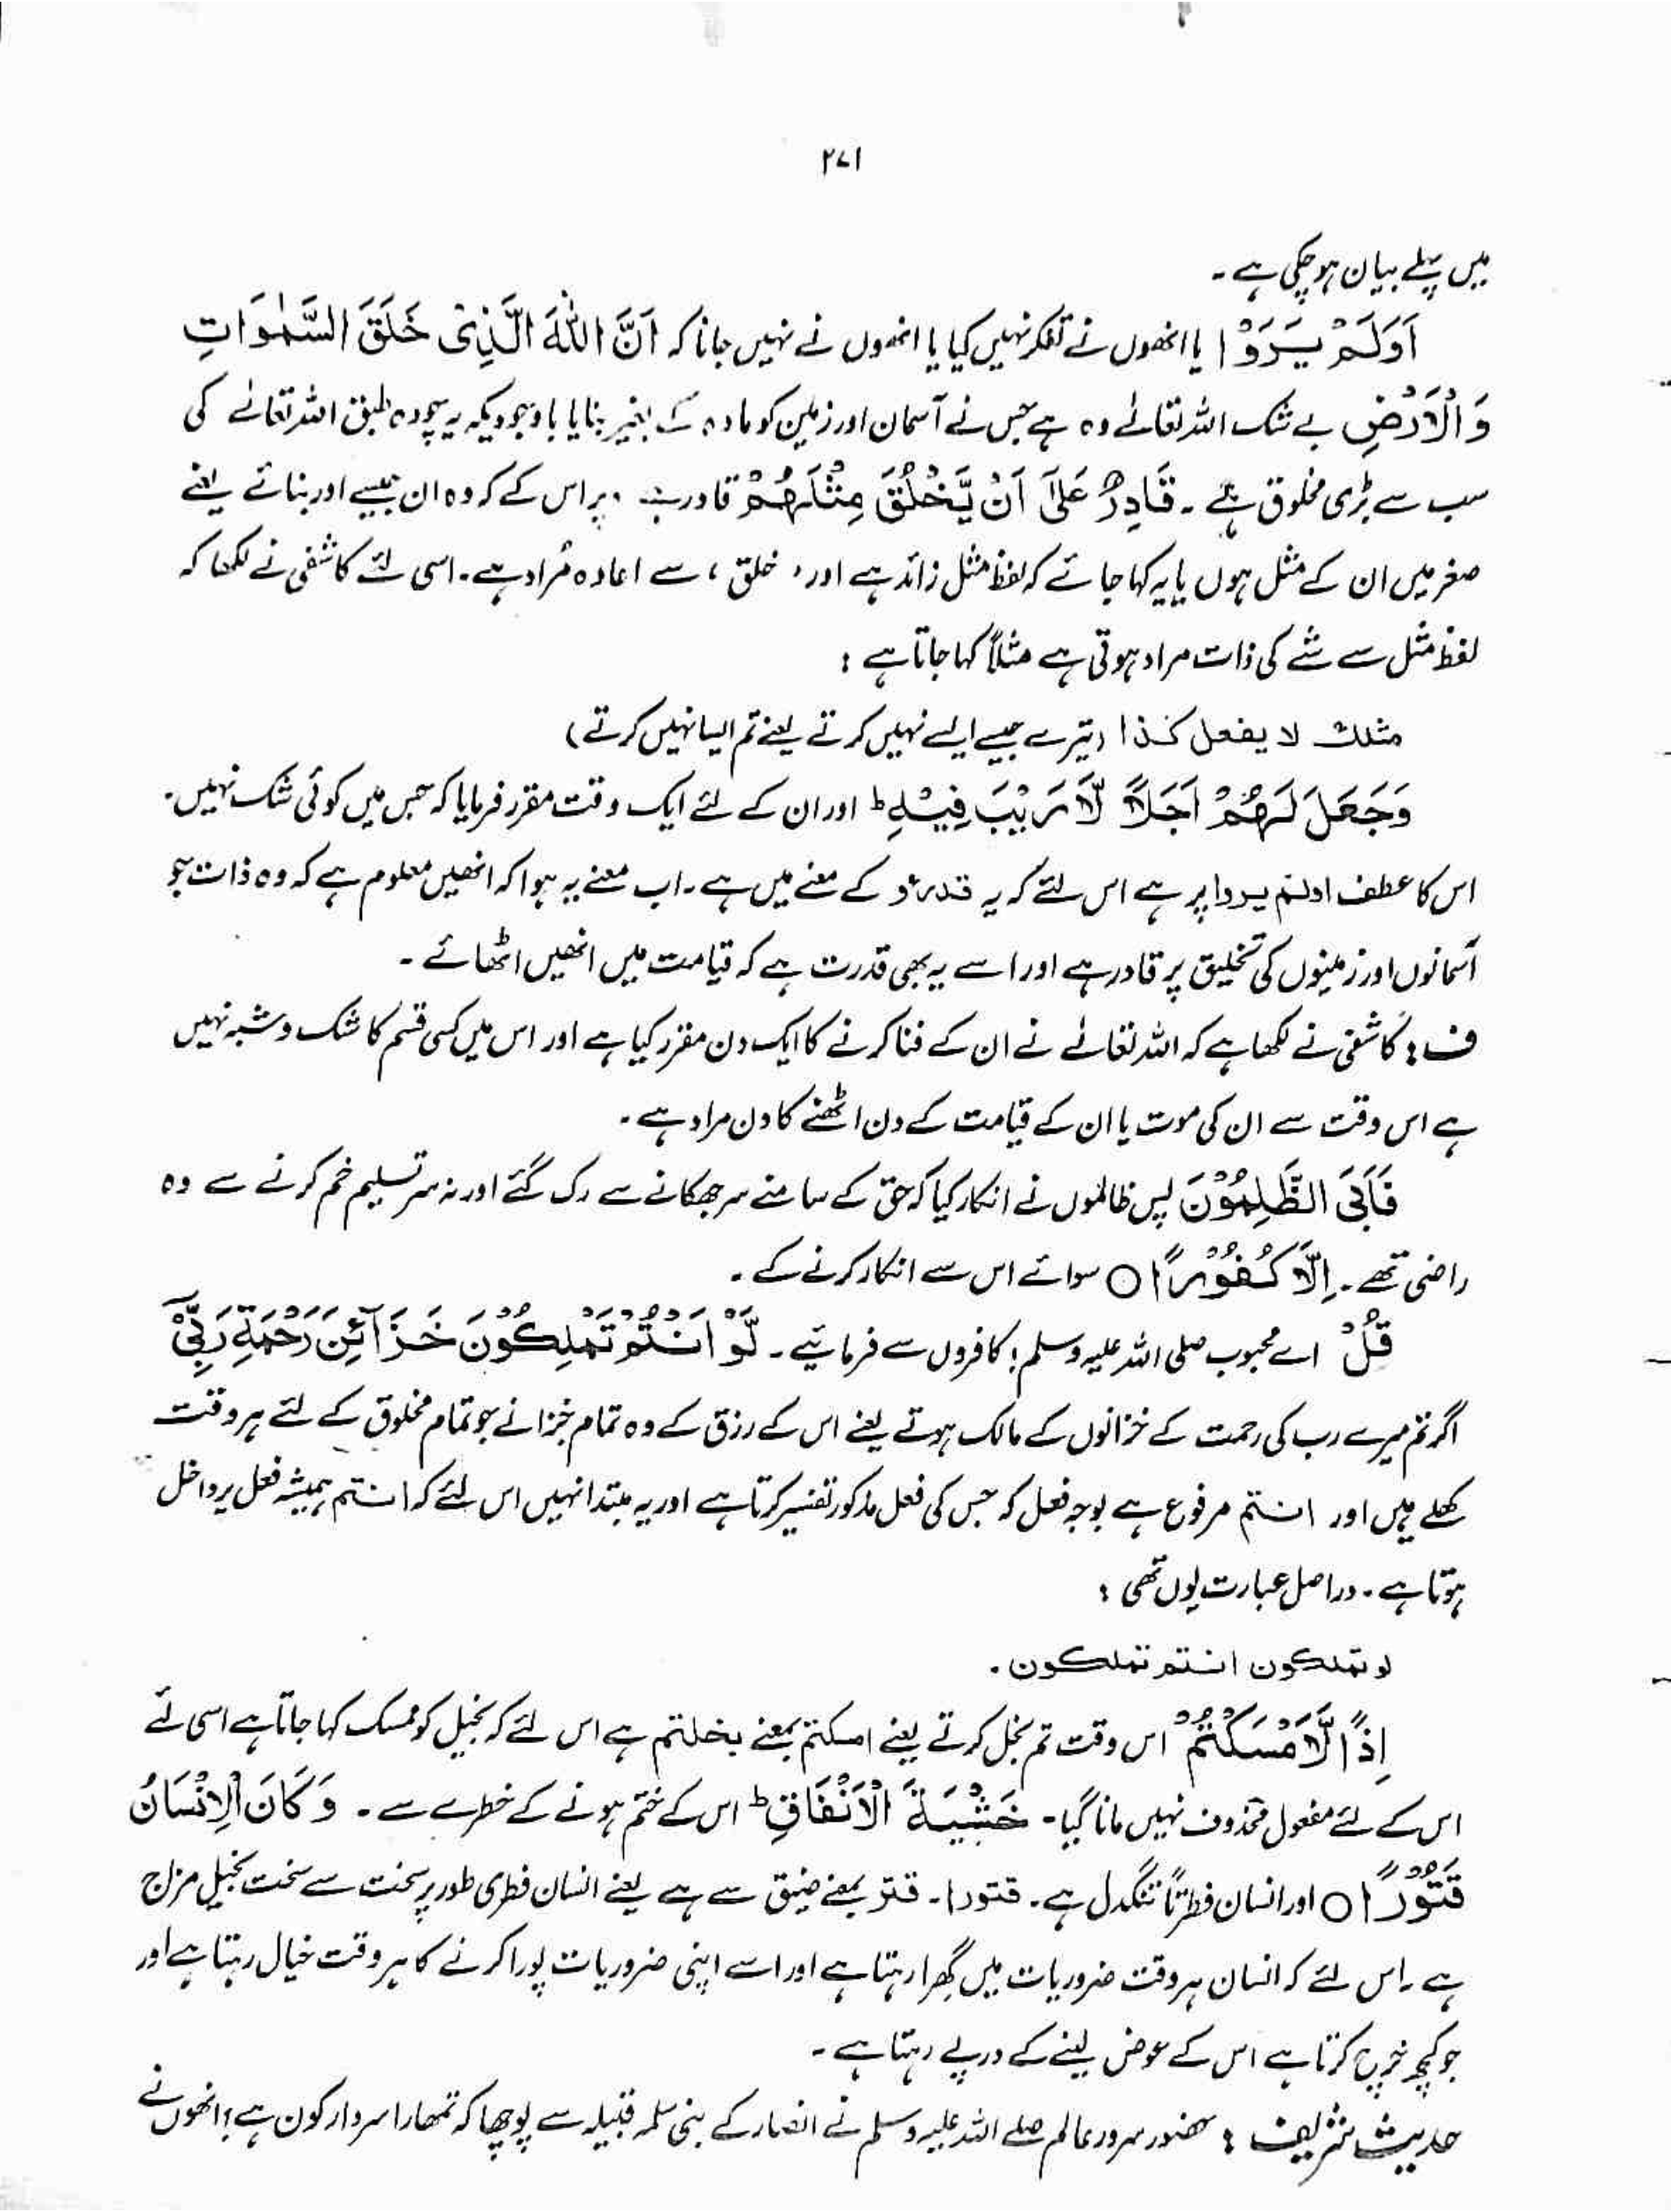 ۲۷۱
میں پہلے بیان ہو چکی ہے ۔
اَوَلَمْ یَرَوْا یا انھوں نے تفکر نہیں کیا یا انھوں نے نہیں جانا کہ اَنَّ اللّٰهَ الَّذِیْ خَلَقَ السَّمٰوَاتِ
وَالْاَرْضِ بے شک اللہ تعالےٰ وہ ہے جس نے آسمان اور زمین کو مادہ کے بغیر بنایا باوجودیکہ یہ چودہ طبق اللہ تعالےٰ کی
سب سے بڑی مخلوق ہے ۔ قَادِرٌ عَلٰٓی اَنْ یَّخْلُقَ مِثْلَهُمْ قادر ہے ، پر اس کے کہ وہ ان جیسے اور بنائے یعنے
صغر میں ان کے مثل ہوں یا یہ کہا جائے کہ لفظ مثل زائد ہے اور ، خلق ، سے اعادہ مُراد ہے ۔ اسی لئے کاشفی نے لکھا کہ
لفظ مثل سے شے کی ذات مراد ہوتی ہے مثلاً کہا جاتا ہے :
مثلك لا یفعل کذا (تیرے جیسے ایسے نہیں کرتے یعنے تم ایسا نہیں کرتے)
وَجَعَلَ لَهُمْ اَجَلًا لَّا رَیْبَ فِیْهِ ط اور ان کے لئے ایک وقت مقرر فرمایا کہ جس میں کوئی شک نہیں ۔
اس کا عطف اولم یروا پر ہے اس لئے کہ یہ قد رأو کے معنے میں ہے ۔ اب معنے یہ ہوا کہ انھیں معلوم ہے کہ وہ ذات جو
آسمانوں اور زمینوں کی تخلیق پر قادر ہے اور اسے یہ بھی قدرت ہے کہ قیامت میں انھیں اٹھائے ۔
ف : کاشفی نے لکھا ہے کہ اللہ تعالےٰ نے ان کے فنا کرنے کا ایک دن مقرر کیا ہے اور اس میں کسی قسم کا شک و شبہ نہیں
ہے اس وقت سے ان کی موت یا ان کے قیامت کے دن اٹھنے کا دن مراد ہے ۔
فَاَبَی الظّٰلِمُوْنَ پس ظالموں نے انکار کیا کہ حق کے سامنے سر جھکانے سے رک گئے اور نہ سر تسلیم خم کرنے سے وہ
راضی تھے ۔ اِلَّا کُفُوْرًا ○ سوائے اس سے انکار کرنے کے ۔
قُلْ اے محبوب صلی اللہ علیہ وسلم ! کافروں سے فرمائیے ۔ لَّوْ اَنْتُمْ تَمْلِکُوْنَ خَزَآئِنَ رَحْمَةِ رَبِّیْٓ
اگر تم میرے رب کی رحمت کے خزانوں کے مالک ہوتے یعنے اس کے رزق کے وہ تمام خزانے جو تمام مخلوق کے لئے ہر وقت
کھلے ہیں اور انتم مرفوع ہے بوجہ فعل کہ جس کی فعل مذکور تفسیر کرتا ہے اور یہ مبتدا نہیں اس لئے کہ انتم ہمیشہ فعل پر داخل
ہوتا ہے ۔ دراصل عبارت یوں تھی :
لو تملکون انتم تملکون ۔
اِذًا لَّاَمْسَکْتُمْ اس وقت تم بخل کرتے یعنے امسکتم بمعنے بخلتم ہے اس لئے کہ بخیل کو ممسک کہا جاتا ہے اسی لئے
اس کے لئے مفعول محذوف نہیں مانا گیا ۔ خَشْیَةَ الْاِنْفَاقِ ط اس کے ختم ہونے کے خطرے سے ۔ وَکَانَ الْاِنْسَانُ
قَتُوْرًا ○ اور انسان فطرتاً تنگدل ہے ۔ قتورا ۔ قتر بمعنے ضیق سے ہے یعنے انسان فطری طور پر سخت سے سخت بخیل مزاج
ہے ۔ اس لئے کہ انسان ہر وقت ضروریات میں گھرا رہتا ہے اور اسے اپنی ضروریات پورا کرنے کا ہر وقت خیال رہتا ہے اور
جو کچھ خرچ کرتا ہے اس کے عوض لینے کے درپے رہتا ہے ۔
حدیث شریف : حضور سرور عالم صلے اللہ علیہ وسلم نے انصار کے بنی سلمہ قبیلہ سے پوچھا کہ تمھارا سردار کون ہے ؛ انھوں نے